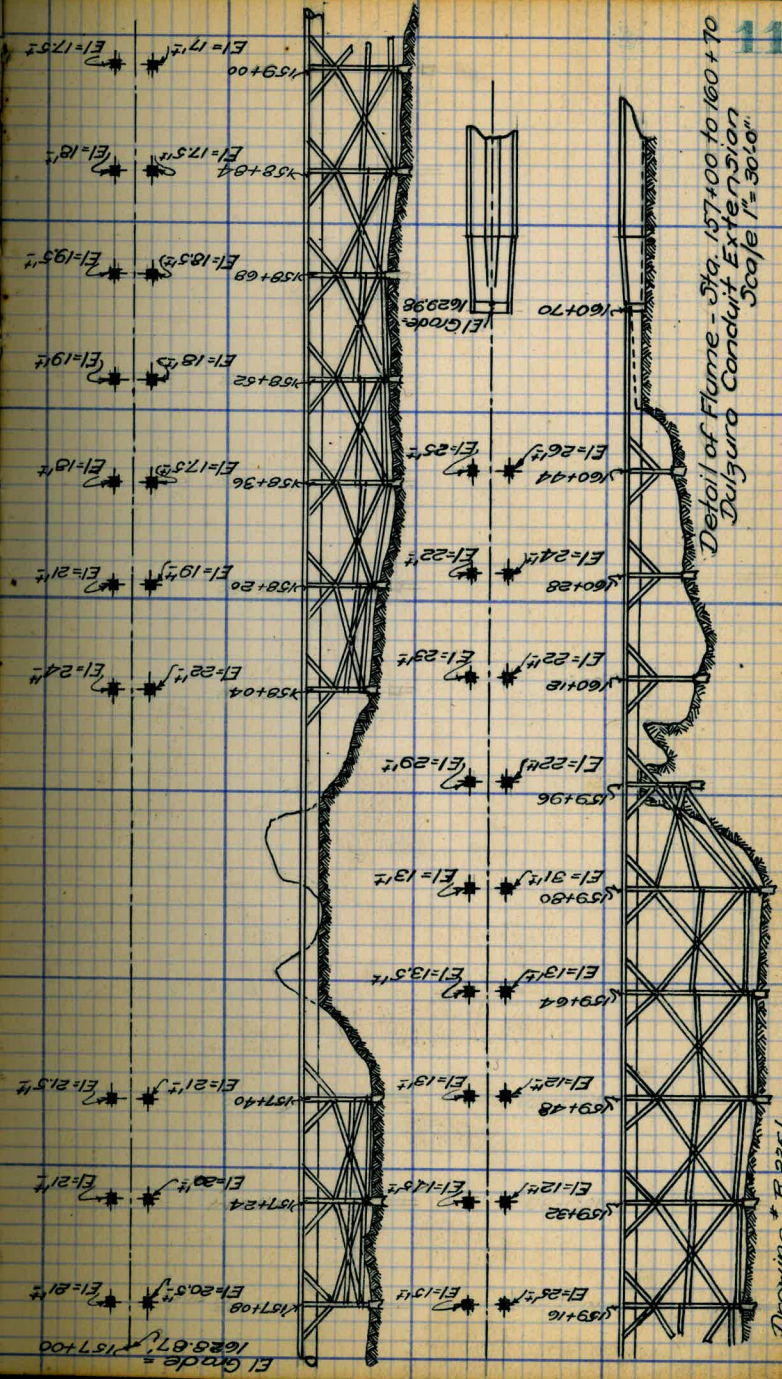 11
Detail of Flume - Sta. 157+00 to 160+70
Dulzura Conduit Extension
Scale 1"=30'-0"
El Grade =
1628.87'
157+00
157+08
El=20.5'±
El=21'±
157+24
El=20'±
El=21'±
157+40
El=21'±
El=21.5'±
158+04
El=22'±
El=24'±
158+20
El=19'±
El=21'±
158+36
El=17.5'±
El=18'±
158+52
El=18'±
El=19'±
158+68
El=18.5'±
El=19.5'±
158+84
El=17.5'±
El=18'±
159+00
El=17'±
El=17.5'±
159+16
El=25'±
El=15'±
159+32
El=12'±
El=14.5'±
159+48
El=12'±
El=13'±
159+64
El=13'±
El=13.5'±
159+80
El=31'±
El=13'±
159+96
El=22'±
El=29'±
160+12
El=22'±
El=23'±
160+28
El=24'±
El=22'±
160+44
El=26'±
El=25'±
160+70
El Grade=
1629.98
Drawing #